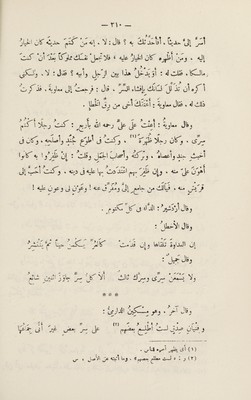 — ٣١٠ —
أسرّ إلىّ حديثا، أفأحدّثك به ؟ قال : لا، إنه من كتم حديثه كان الخيار
إليه، ومن أظهره كان الخيار عليه، فلا تجعل نفسك مملوكا بعد أن كنت
مالكا، فقلت له : أو يدخل هذا بين الرجل وأبيه ؟ فقال : لا، ولكنى
أكره أن تذلّل لسانك بإفشاء السرّ، قال : فرجعت إلى معاوية، فذكرت
ذلك له، فقال معاوية : أعتقك أخى من رقّ الخطإ
وقال معاوية : أعنت على علىّ رحمه الله بأربع : كنت رجلا أكتم
سرّى، وكان رجلا ظهرة، وكنت فى أطوع جند وأصلحه، وكان فى
أخبث جند وأعصاه، وتركته وأصحاب الجمل وقلت : إن ظفروا به كانوا
أهون علىّ منه، وإن ظفر بهم اعتددت بها عليه فى دينه، وكنت أحبّ إلى
قريش منه، فيالك من جامع إلىّ ومفرّق عنه ! وعون لى وعون عليه !
وقال أردشير : الداء فى كل مكتوم.
وقال الأخطل :
إن العداوة تلقاها وإن قدمت كالعرّ يكمن حينا ثم ينتشر
وقال جميل :
ولا يسمعن سرّى وسرّك ثالث ألا كل سرّ جاوز اثنين شائع
***
وقال آخر، وهو مسكين الدارمىّ :
وفتيان صدق لست مطلع بعضهم على سرّ بعض غير أنّى جماعها
(١) أى يظهر أمره للناس.